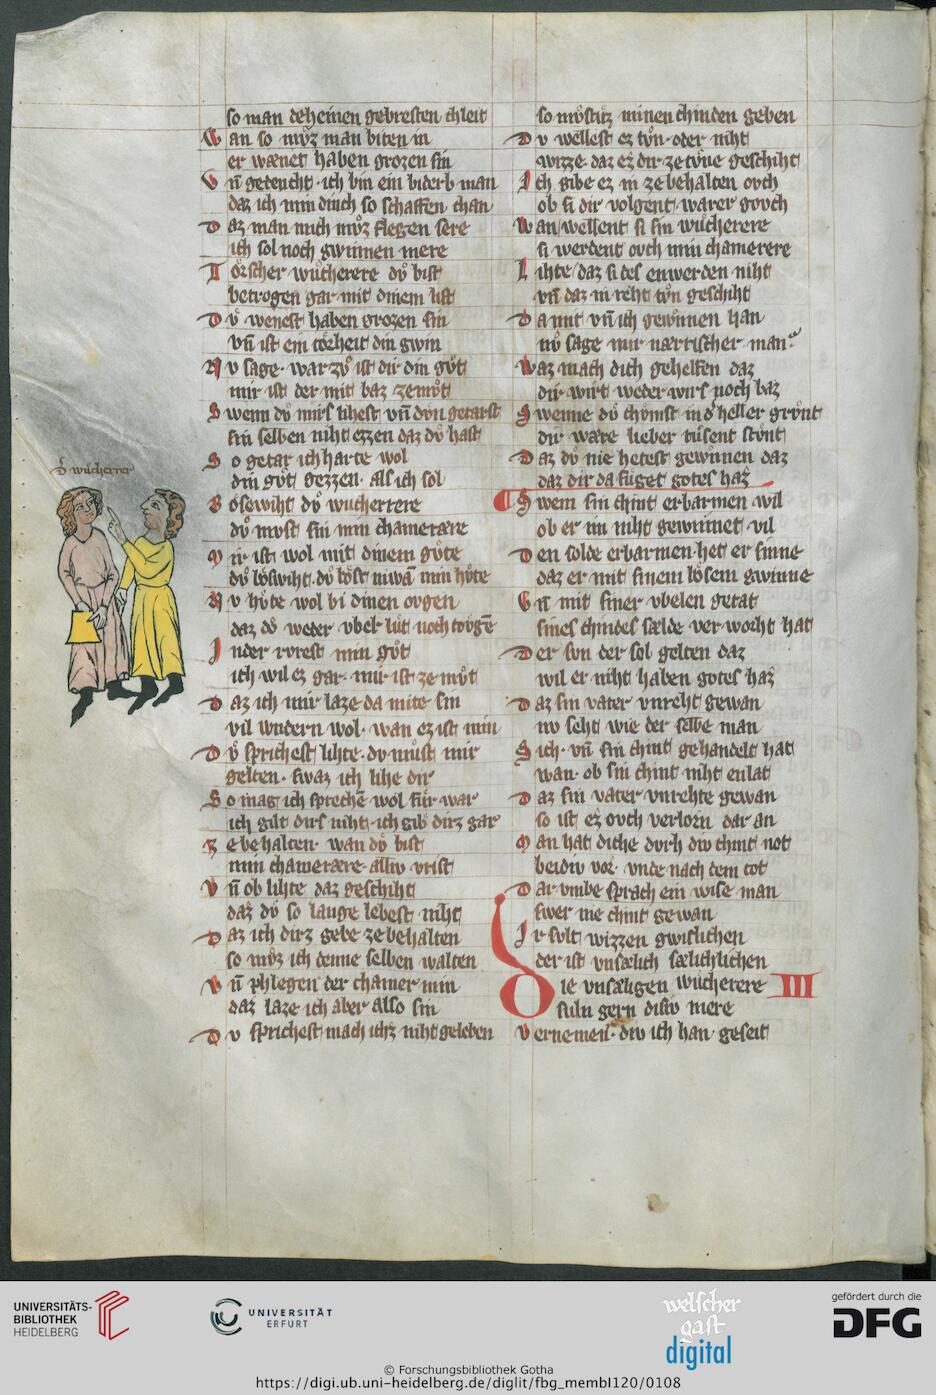 so man deheinen gebresten chleit
Wan so mvͦz man biten in
er wænet haben grozen sin
Vn̄ gedeucht · ich bin ein biderb man
daz ich min dinch so schaffen chan
Daz man mich mvͦz flegen sere
ich sol noch gwinnen mere
Torscher wuͦcherere dvͦ bist
betrogen gar mit dinem list
Dvͦ wenest haben grozen sin
vn̄ ist ein torheit din gwin
Nv sage · war zvͦ ist dir din gvͦt
mir ist der mit baz ze mvͦt
Swenn dvͦ mirs lihest vn̄ dvn getarst
sin selben niht ezzen daz dvͦ hast
So getar ich harte wol
din gvͦt gezzen · als ich sol
Bosewiht dvͦ wucherrere
dvͦ mvst sin min chameræere
Mir ist wol mit dinem gvͦte
dvͦ boswiht · dvͦ bost niwā min hvͦte
Nv hvͦte wol bi dinen ovgen
daz dvͦ weder vber lvͦt noch tovgē
Inder rvrest min gvͦt
ich wil ez gar · mir ist ze mvͦt
Daz ich mir laze da mite sin
vil wndern wol · wan ez ist min
Dvͦ sprichest lihte · dv muͦst mir
gelten · swaz ich lihe dir
So mag ich sprechē wol fuͦr war
ich gilt dirs niht · ich gib dirz gar
Ze behalten · wan dvͦ bist
min chameræere · alliv vrist
Vn̄ ob lihte daz geschiht
daz dvͦ so lange lebest niht
Daz ich dirz gebe ze behalten
so mvͦz ich denne selben walten
Vn̄ phlegen der chamer min
daz laze ich aber also sin
Dv sprichest mach ichz niht geleben
d̓ wucherrer
so mvͦstuͦz minen chinden geben
Dv wellest ez tvͦn · oder niht
wizze daz ez dir ze tvͦne geschiht
Ich gibe ez in ze behalten ovch
ob si dir volgent · warer govch
Wan wellent si sin wuͦcherere
si werdent ovch min chamerere
Lihte daz si des enwerden niht
vn̄ daz in reht tvͦn geschiht
Da mit vn̄ ich gewinnen han
nvͦ sage mir nærrischer man
Waz mach dich gehelfen daz
dir wirt weder wirs noch baz
Swenne dvͦ chvmst in d̓ heller grvͦnt
dir wære lieber tuͦsent stvͦnt
Daz dvͦ nie hetest gewinnen daz
daz dir da fuͦget gotes haz
Swem sin chint erbarmen wil
ob er im niht gewinnet vil
Den solde erbarmen · het er sinne
daz er mit sinem bosem gwinne
Vn̄ mit siner vbelen getat
sines chindes sælde verworht hat
Der svn der sol gelten daz
wil er niht haben gotes haz
Daz sin vater vnreht gewan
nv seht wie der selbe man
Sich · vn̄ sin chint gehandelt hat
wan · ob sin chint niht enlat
Daz sin vater vnrehte gewan
so ist ez ovch verlorn dar an
Man hat diche dvrh div chint not
beidiv vor · vnde nach dem tot
Dar vmbe sprach ein wise man
swer nie chint gewan
Ir svlt wizzen gwislichen
der ist vnsælich sælichlichen
Die vnsæligen wucherere III
suln gern disiv mere
Vernemen · div ich han · geseit
UNIVERSITÄTS-
BIBLIOTHEK
HEIDELBERG
UNIVERSITÄT
ERFURT
welscher
gast
digital
gefördert durch die
DFG
© Forschungsbibliothek Gotha
https://digi.ub.uni-heidelberg.de/diglit/fbg_membI120/0108